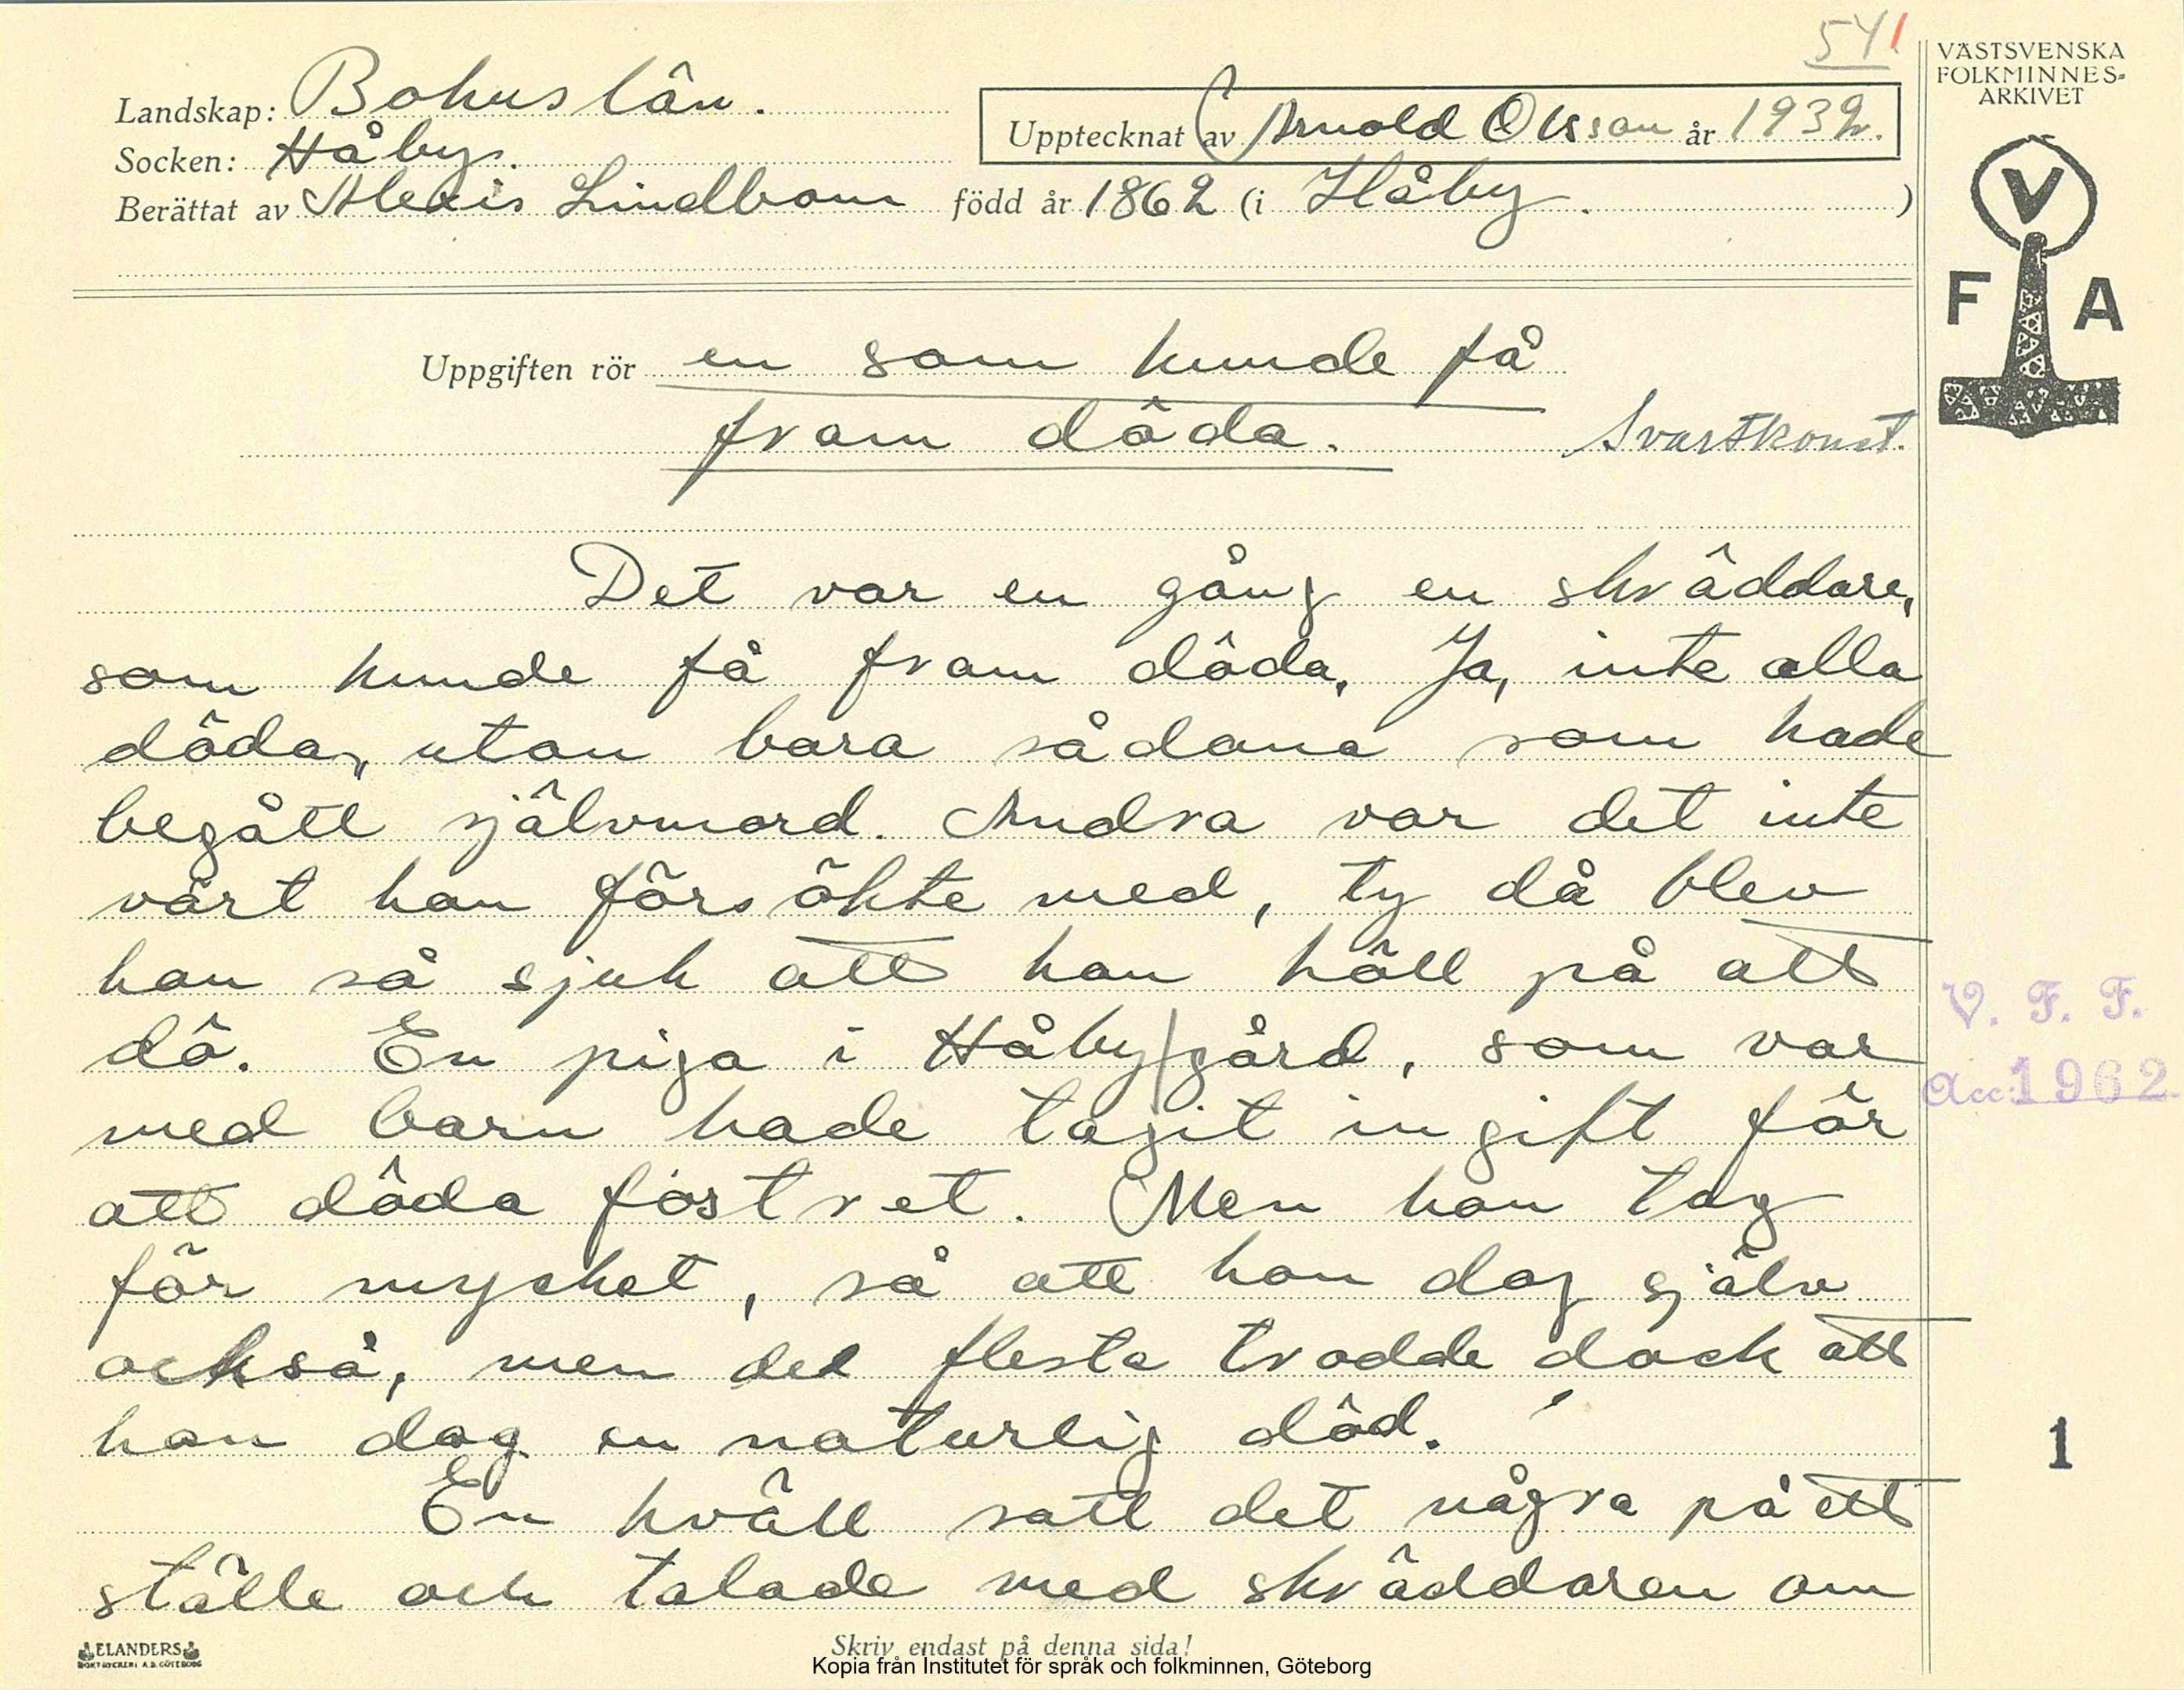 541
VÄSTSVENSKA
FOLKMINNES-
ARKIVET
Landskap: Bohuslän.
Upptecknat av Arnold Olsson år 1932.
Socken: Håby.
Berättat av Alexis Lindbom född år 1862 (i Håby.)
V
F A
Uppgiften rör en som kunde få
fram döda. Svartkonst.
Det var en gång en skräddare,
som kunde få fram döda. Ja, inte alla
döda, utan bara sådana som hade
begått självmord. Andra var det inte
värt han försökte med, ty då blev
han så sjuk att han höll på att
dö. En piga i Håby gård, som var
med barn hade tagit in gift för
att döda fostret. Men hon tog
för mycket, så att hon dog själv
också, men det flesta trodde dock att
hon dog en naturlig död.
En kväll satt det några på ett
ställe och talade med skräddaren om
V. F. F.
Acc 1962
1
ELANDERS
BOKTRYCKERI A.B. GÖTEBORG
Skriv endast på denna sida!
Kopia från Institutet för språk och folkminnen, Göteborg